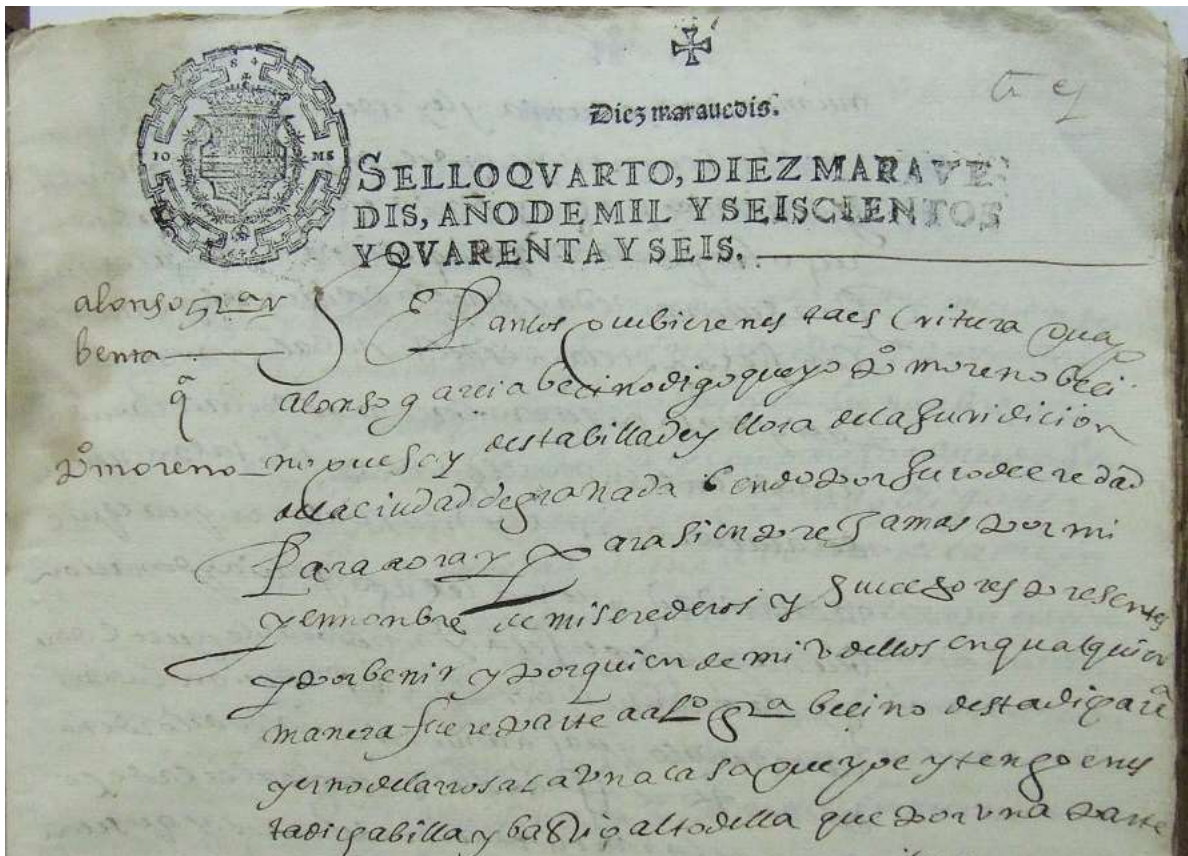 Diez marauedis.
SELLO QVARTO, DIEZ MARAVE
DIS, AÑO DE MIL Y SEISCIENTOS
Y QVARENTA Y SEIS.
alonso gra
benta
qa
Po moreno
quantos ubieren esta escritura
alonso garcia becino digo que yo po moreno beci
no que soy desta billa de yllora de la juridicion
de la ciudad de granada bendo por juro de eredad
para aora y para sienpre jamas por mi
y en nonbre de mis erederos y suceçores presentes
y por benir y por quien de mi v dellos en qualquier
manera fuere parte a alo gra becino desta
yerno de la una casa que yo e y tengo en es
ta billa y bario alto della que por vna parte